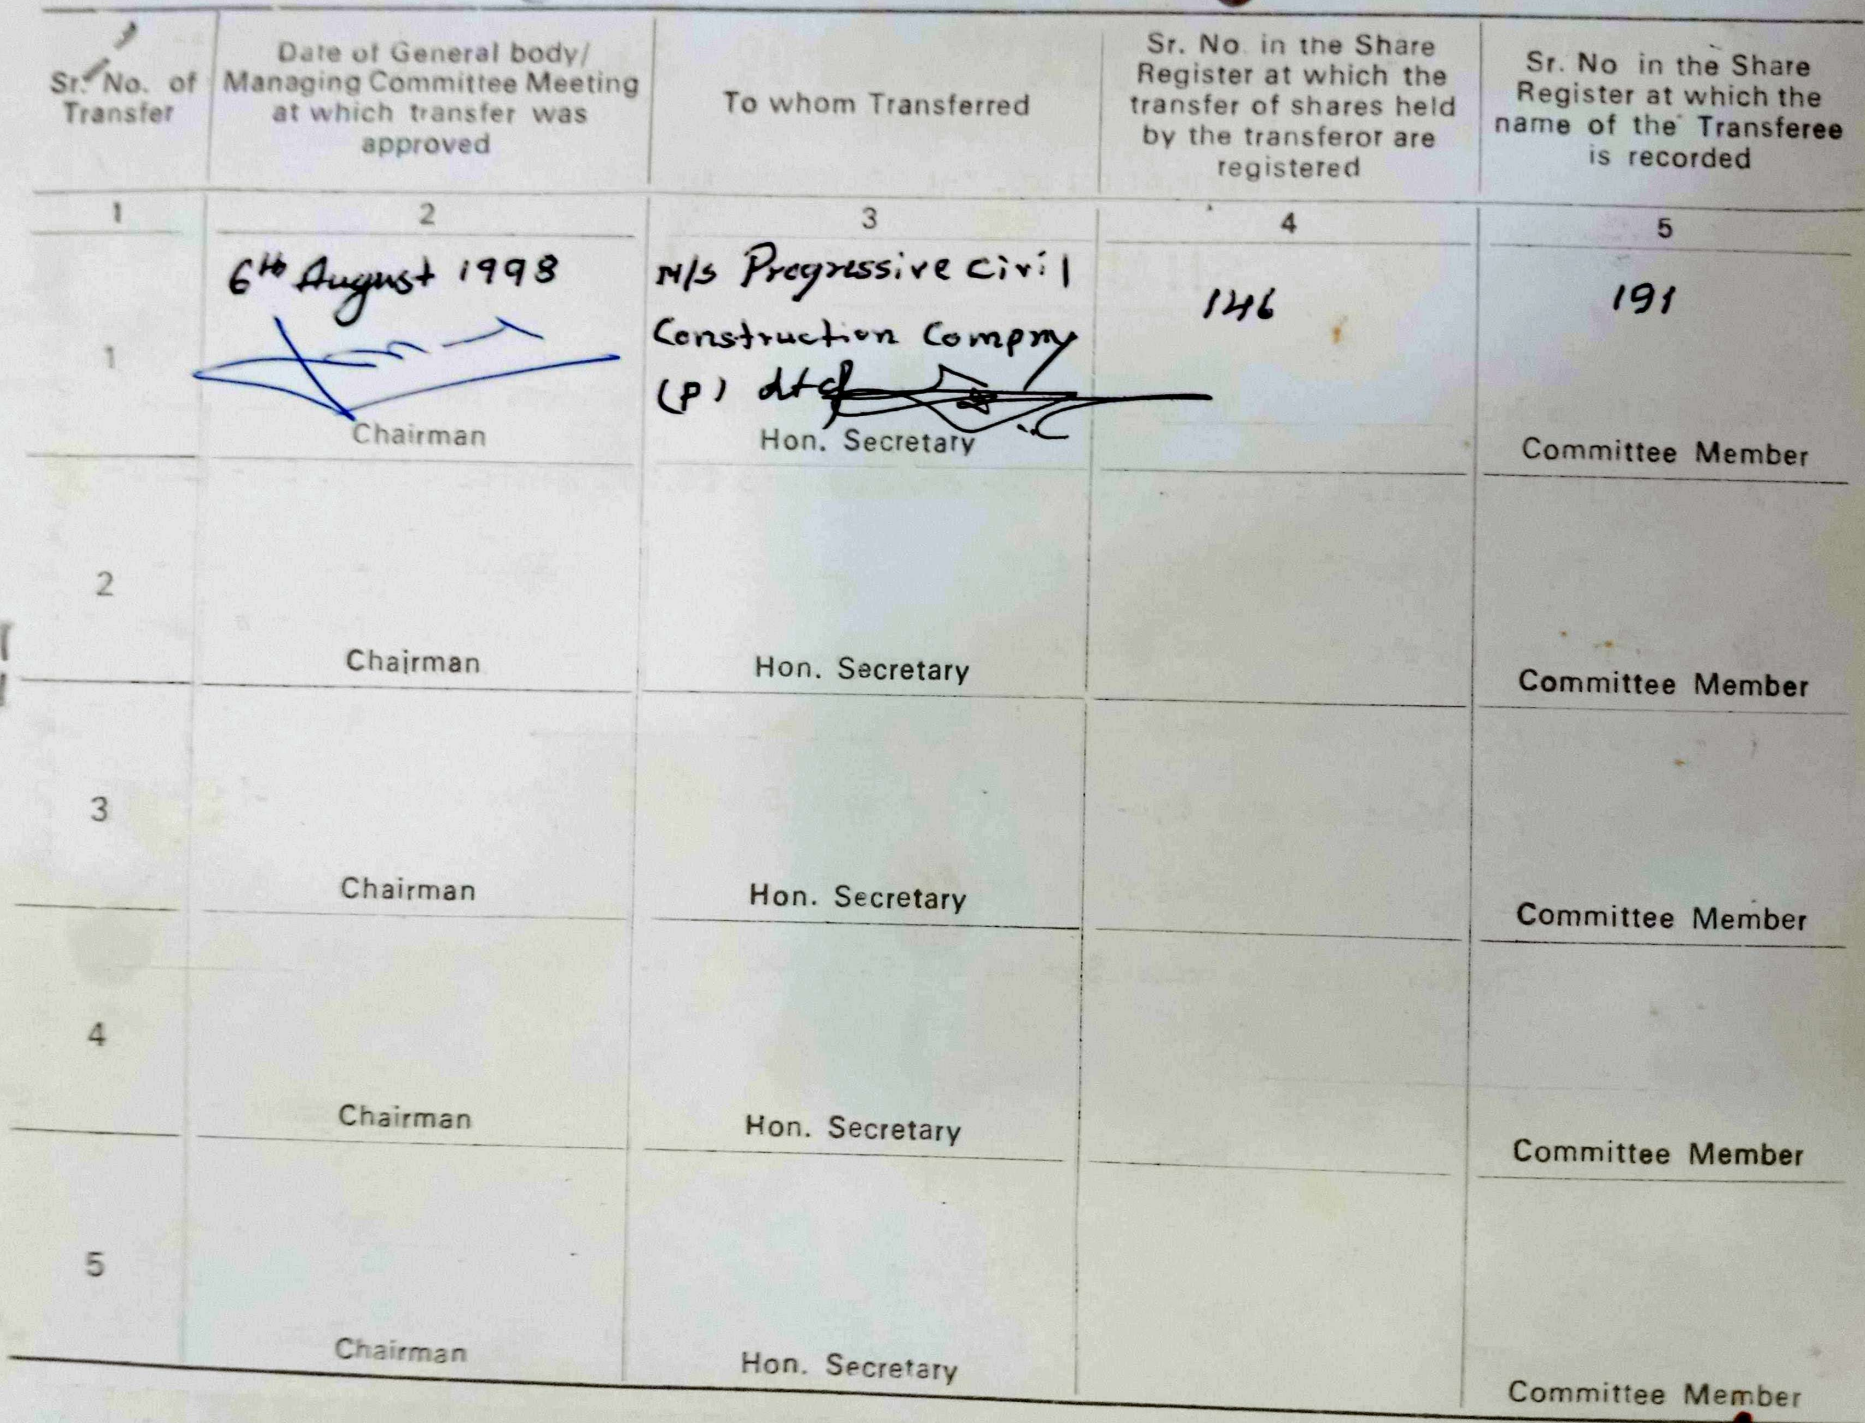 Sr. No. of
Transfer
Date of General body/
Managing Committee Meeting
at which transfer was
approved
To whom Transferred
Sr. No. in the Share
Register at which the
transfer of shares held
by the transferor are
registered
Sr. No in the Share
Register at which the
name of the Transferee
is recorded
1 2 3 4 5
1
6th August 1998
Chairman
M/s Progressive Civil
Construction Company
(P) Ltd
Hon. Secretary
146
191
Committee Member
2
Chairman
Hon. Secretary
Committee Member
3
Chairman
Hon. Secretary
Committee Member
4
Chairman
Hon. Secretary
Committee Member
5
Chairman
Hon. Secretary
Committee Member